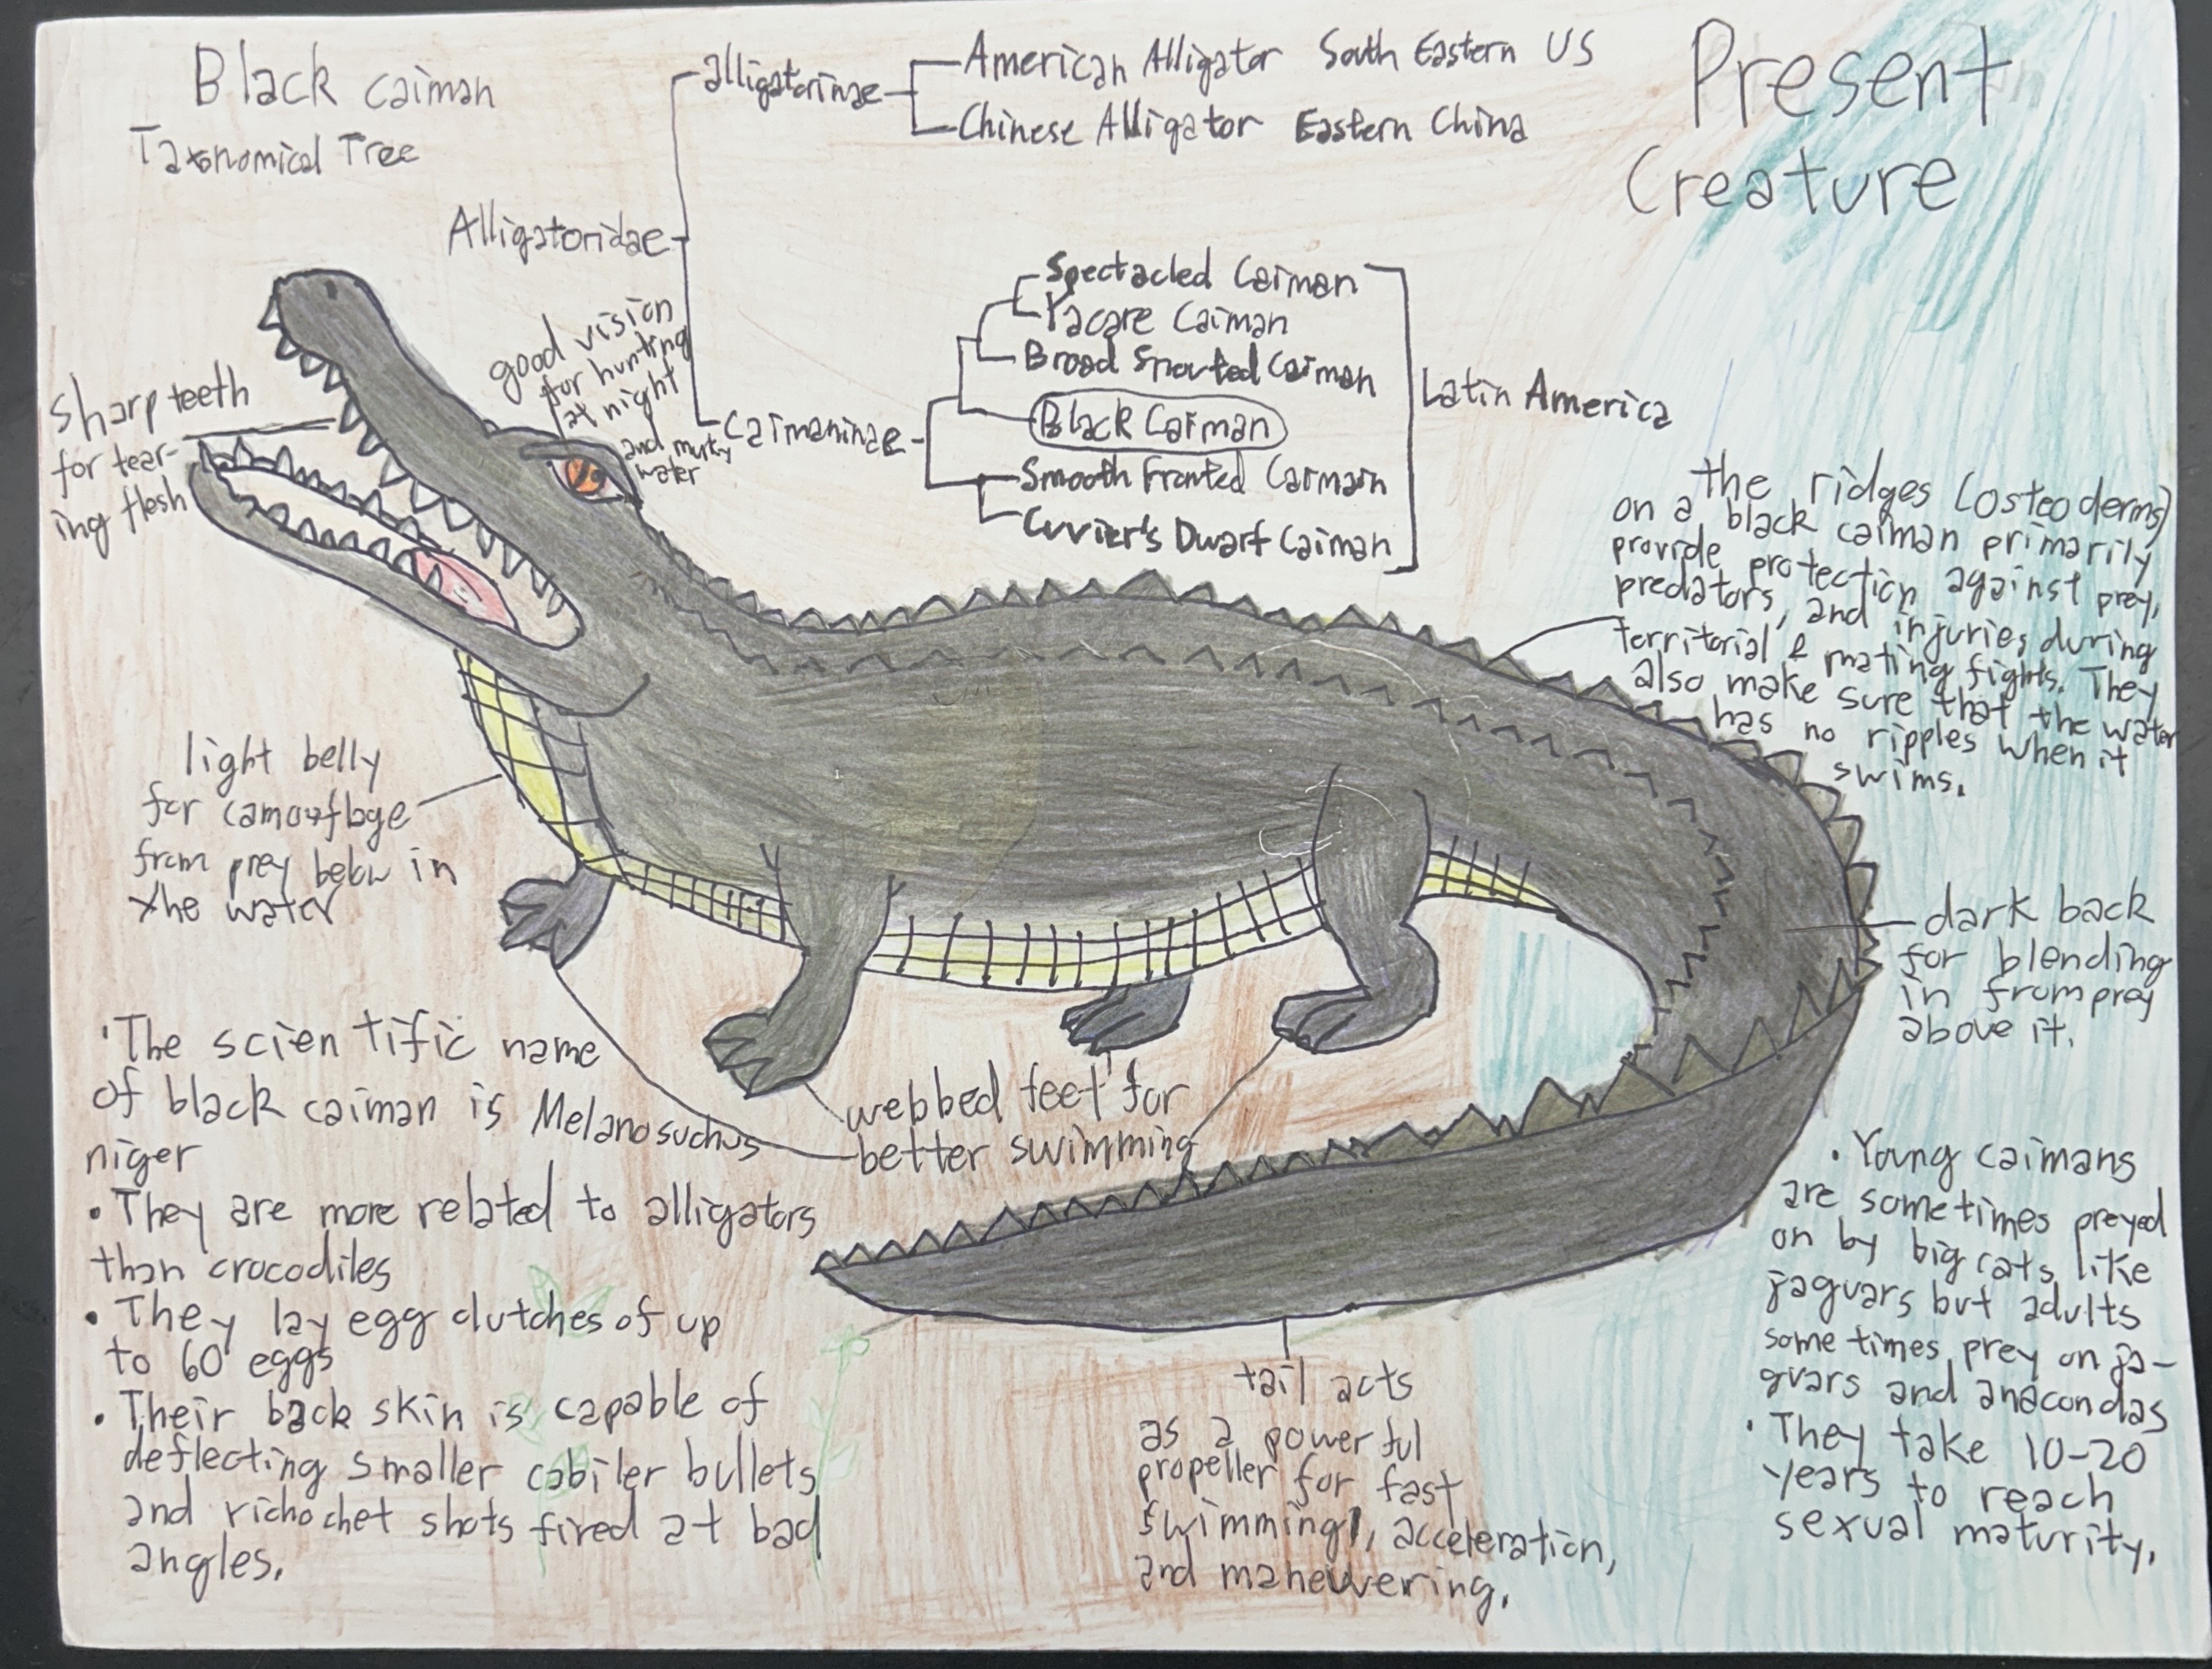 Black caiman
Taxonomical Tree
Present
Creature
Alligatoridae
alligatorinae
American Alligator South Eastern US
Chinese Alligator Eastern China
Caimaninae
Spectacled Caiman
Yacare Caiman
Broad Snouted Caiman
Black Caiman
Smooth Fronted Caiman
Cuvier's Dwarf Caiman
Latin America
good vision
for hunting
at night
and murky
water
sharp teeth
for tear-
ing flesh
the ridges (osteoderms)
on a black caiman primarily
provide protection against prey,
predators, and injuries during
territorial & mating fights. They
also make sure that the water
has no ripples when it
swims.
light belly
for camouflage
from prey below in
the water
dark back
for blending
in from prey
above it.
webbed feet for
better swimming
• The scientific name
of black caiman is Melanosuchus
niger
• They are more related to alligators
than crocodiles
• They lay egg clutches of up
to 60 eggs
• Their back skin is capable of
deflecting smaller cabiler bullets
and richochet shots fired at bad
angles.
tail acts
as a powerful
propeller for fast
swimming, acceleration,
and maneuvering.
• Young caimans
are sometimes preyed
on by big cats like
jaguars but adults
sometimes prey on ja-
guars and anacondas
• They take 10-20
years to reach
sexual maturity.